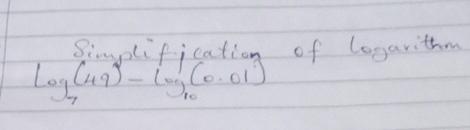 Simplification of logarithm
Log₇(49) - log₁₀(0.01)